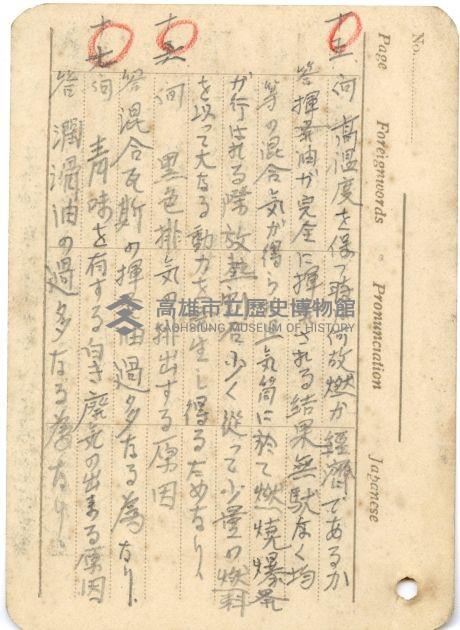 No.
Page Foreignwords Pronunciation Japanese
十五 何 高温度を保つ時何故燃が経済であるか
答 揮発油が完全に揮発される結果無駄なく均
等の混合気が得られ且気筒に於て燃焼爆発
が行はれる際放熱割合少く従って少量の燃料
を以って大なる動力を生し得るためなり、
十六 何 黒色排気の排出する原因
答 混合瓦斯の揮発油過多なる為なり、
十七 何 青味を有する白き廃気の出来る原因
答 潤滑油の過多なる為なり、
高雄市立歷史博物館
KAOHSIUNG MUSEUM OF HISTORY